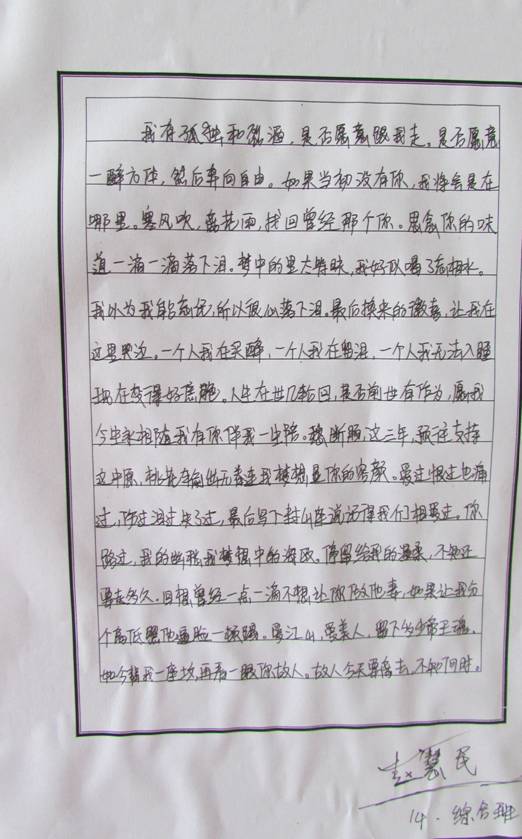 我有孤独和烈酒，是否愿意跟我走。是否愿意
一醉方休，然后奔向自由。如果当初没有你，我将会是在
哪里。寒风吹，落花雨，找回曾经那个你。思念你的味
道一滴一滴落下泪。梦中的我好似喝了忘相水。
我以为我能忘记，所以很少落下泪。最后换来的，让我在
这里哭泣。一个人我在买醉，一个人我在留泪，一个人我无法入睡
现在变得好离。人生在世几轮回，是否前世有作为，愿我
今生来相随我有你伴我一生陪。魂断，这三年，支持
这中原，我梦想是你的容颜。爱过恨过也痛
过，过泪过哭过，最后写下封信说记得我们相爱过。你
路过，我的，我梦想中的海鸥。停留给我的温柔，不知还
要走多久。回想曾经一点一滴不想让你做他妻，如果让我分
个高低。爱江山，爱美人，留下
如今我一座坟，再看一眼你故人。故人今天要离去，不知何时。
赵慧民
14.综合班